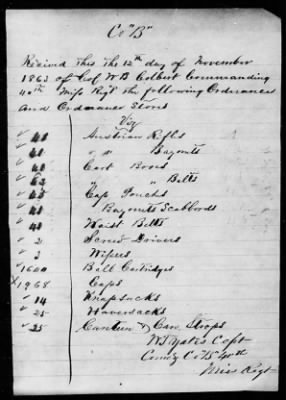 Co "B"
Recived This The 12th day of November
1863 of Col W B Colbert Commanding
40th Miss Regt the following Ordnances
and Ordnance Stores
Viz
41 Austrian Rifles
41 " " Bayonets
41 Cart Boxes
62 " Belts
63 Cap Pouchs
41 Bayonets Scabbords
41 Waist Belts
2 Screw Drivers
3 Wipers
1600 Ball Cartridges
1968 Caps
14 Knapsacks
25 Haversacks
25 Canteen & Can. Strops
W T Yates Capt
Comdg Co "B" 40th
Miss Regt